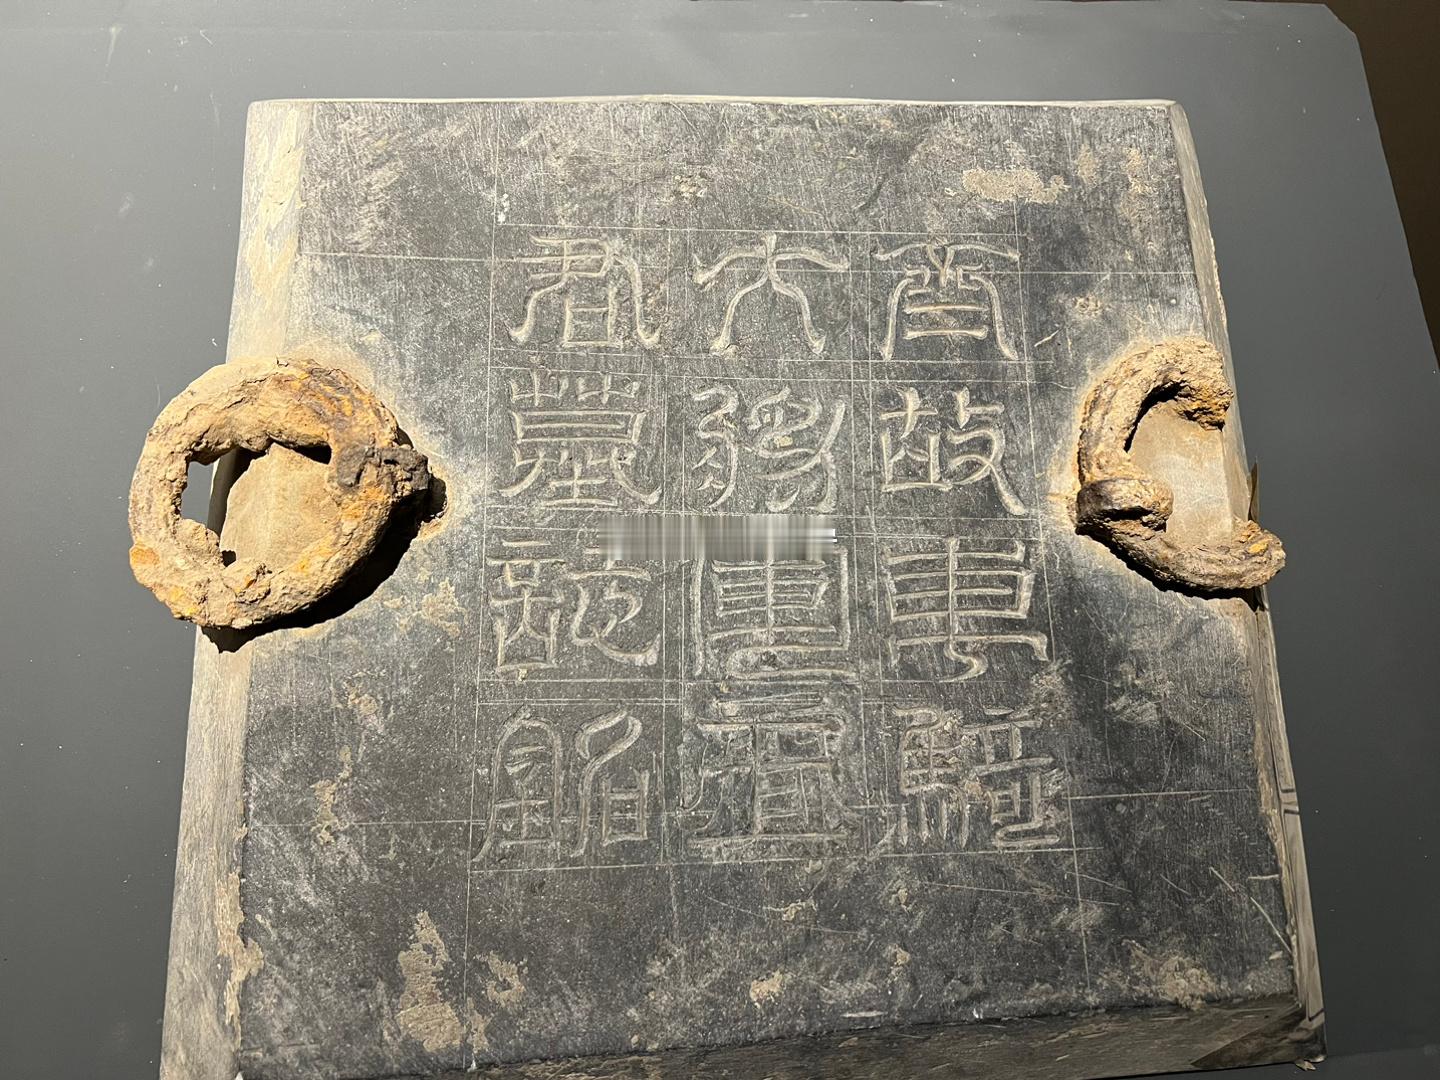 周故車騎
大將軍
君墓誌銘